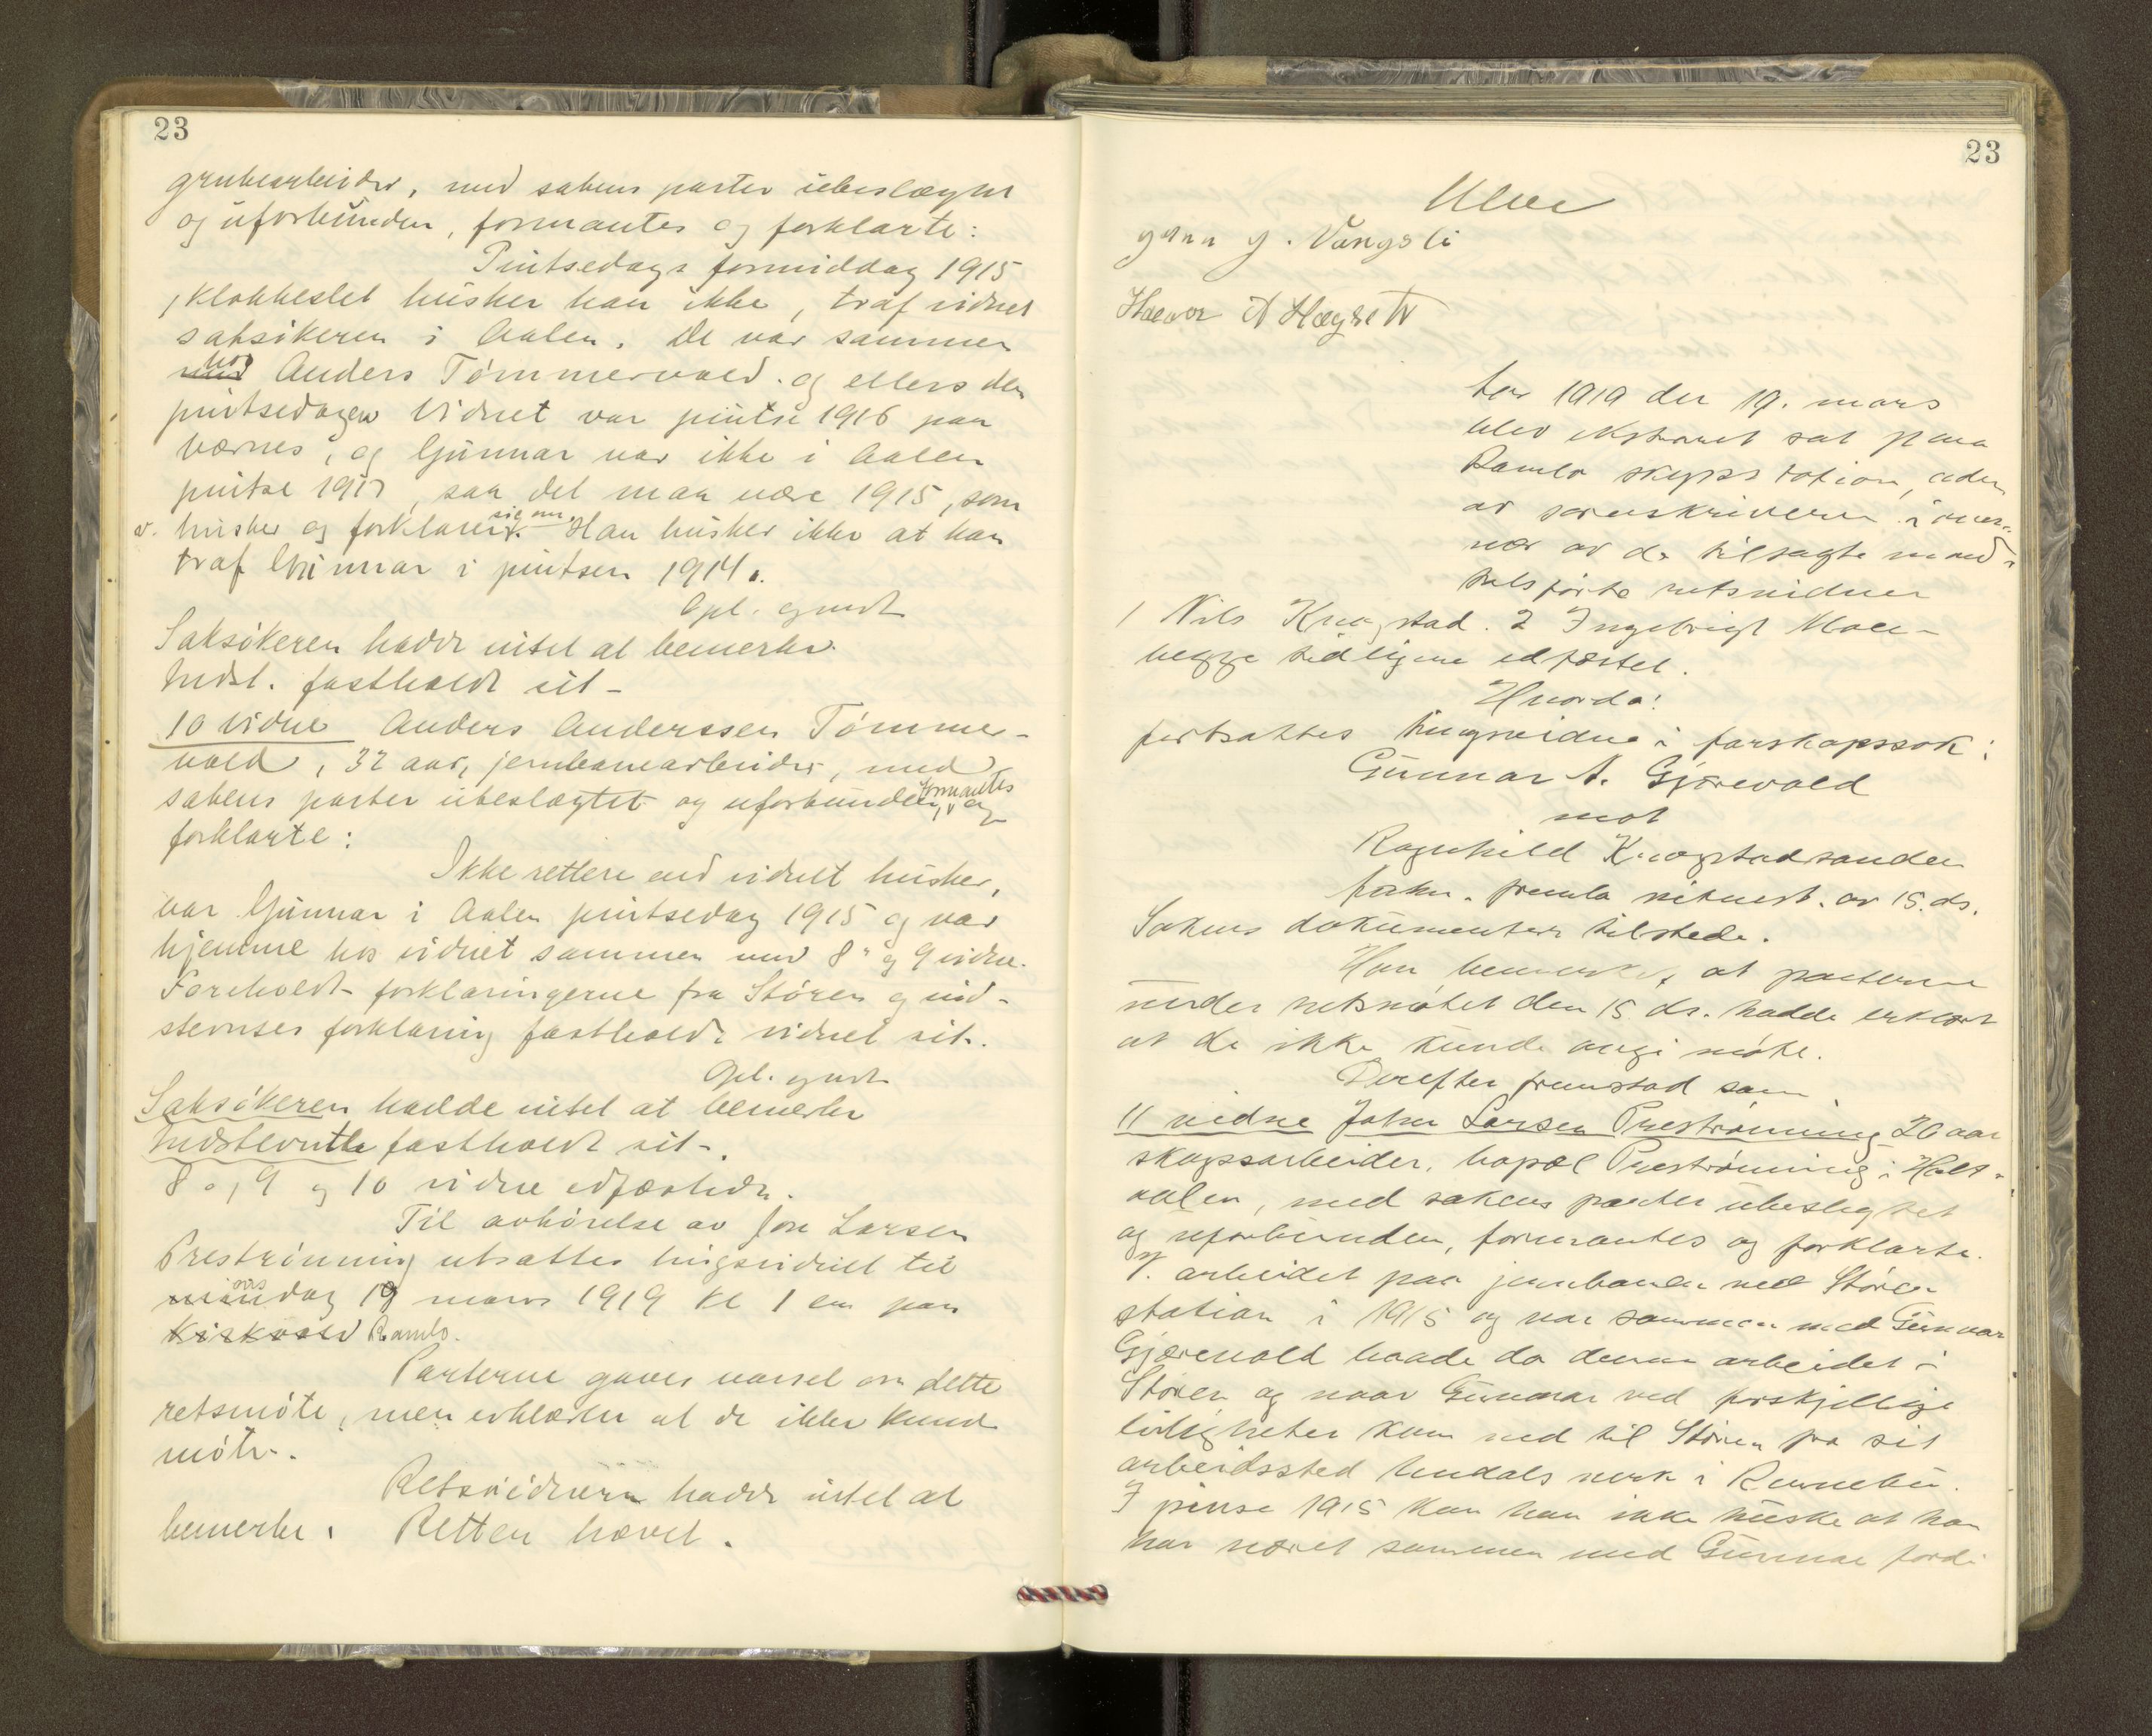 23
grubearbeider, med sakens parter ubeslægtet
og uforbunden, formantes og forklarte:
Pintsedags formiddag 1915
, klokkeslet husker han ikke, traf vidnet
saksøkeren i Aalen. De var sammen
hos Anders Tömmervold. og ellers den
pintsedagen Vidnet var pintse 1916 paa
Værnes, og Gunnar var ikke i Aalen
pintse 1917, saa det maa være 1915, som
v. husker og forklarer sig om. Han husker ikke at han
traf Gunnar i pintsen 1914.
Opl. godt
Saksökeren hadde intet at bemerke.
Indst. fastholdt sit -
10 vidne Anders Anderssen Tömmer-
vold, 32 aar, jernbanearbeider, med
sakens parter ubeslægtet og uforbunden, formantes og
forklarte:
Ikke rettere end vidnet husker,
var Gunnar i Aalen pintsedag 1915 og var
hjemme hos vidnet sammen med 8de og 9 vidne.
Foreholdt forklaringerne fra Stören og ind-
stevntes forklaring fastholdt vidnet sit.
Opl. godt
Saksökeren hadde intet at bemerke
Indstevnte fastholdt sit.
8de, 9 og 10 vidne edfæstedes.
Til avhörelse av Jon Larsen
Preströnning utsattes tingsvidnet til
onsdag 19 mars 1919 kl 1 em paa
Kirkvold Ramlo.
Parterne gaves varsel om dette
retsmöte, men erklærte at de ikke kunde
möte.
Retsvidnerne hadde intet at
bemerke. Retten hævet.
23
G. Vangsli
A Hægset
Aar 1919 den 19. mars
blev ekstraret sat paa
Ramlo skysstation, adm.
av sorenskriveren i overv-
vær av de tilsagte mand-
talsførte retsvidner
1 Nils Knogstad. 2 Ingebrigt Moen -
begge tidligere edfæstet.
Hvorda:
fortsattes tingsvidne i farskapssak:
Gunnar A. Gjærevold
mot
Ragnhild Knogstadsanden
forkn. fremla retsmøt. av 15. ds.
Sakens dokumenter tilstede.
Han bemerket, at parterne
under retsmøtet den 15 ds. hadde erklært
at de ikke kunde angi møte.
Derefter fremstod som
11 vidne John Larsen Prestrønning 20 aar
skogsarbeider, bopæl Prestrønning i Holt-
aalen, med sakens parter ubeslegtet
og uforbunden, formantes og forklarte.
V. arbeidet paa jernbanen ved Støren
station i 1915 og var sammen med Gunnar
Gjærevold baade da denne arbeidet i
Støren og naar Gunnar ved forskjellige
leiligheter kom ned til Støren fra sit
arbeidssted Undals verk i Rennebu.
I pinse 1915 kan han ikke huske at han
har været sammen med Gunnar fordi